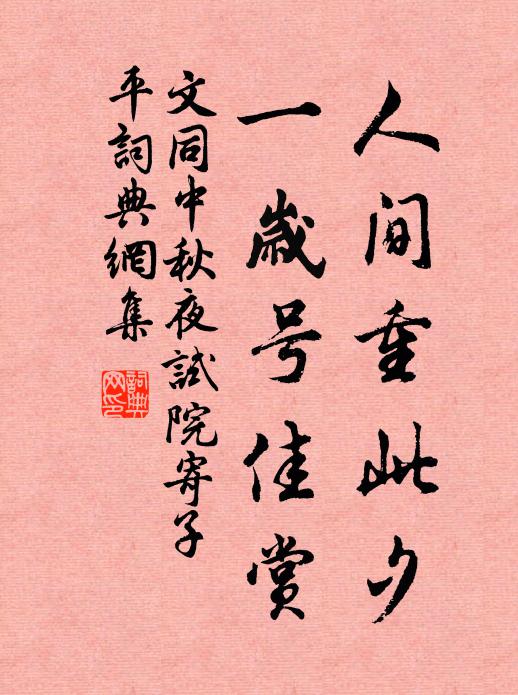 人间重此夕
一歲号佳赏
文同中秋夜試院寄子
平詞典網集
詞典
网印